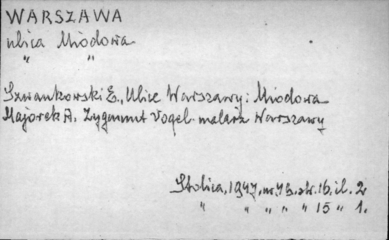 WARSZAWA
ulica Miodowa
" "
Szwankowski E., Ulice Warszawy: Miodowa
Majorek A. Zygmunt Vogel malarz Warszawy
Stolica, 1947, nr. str. 16, il. 2
" " " " " 15 " 1.